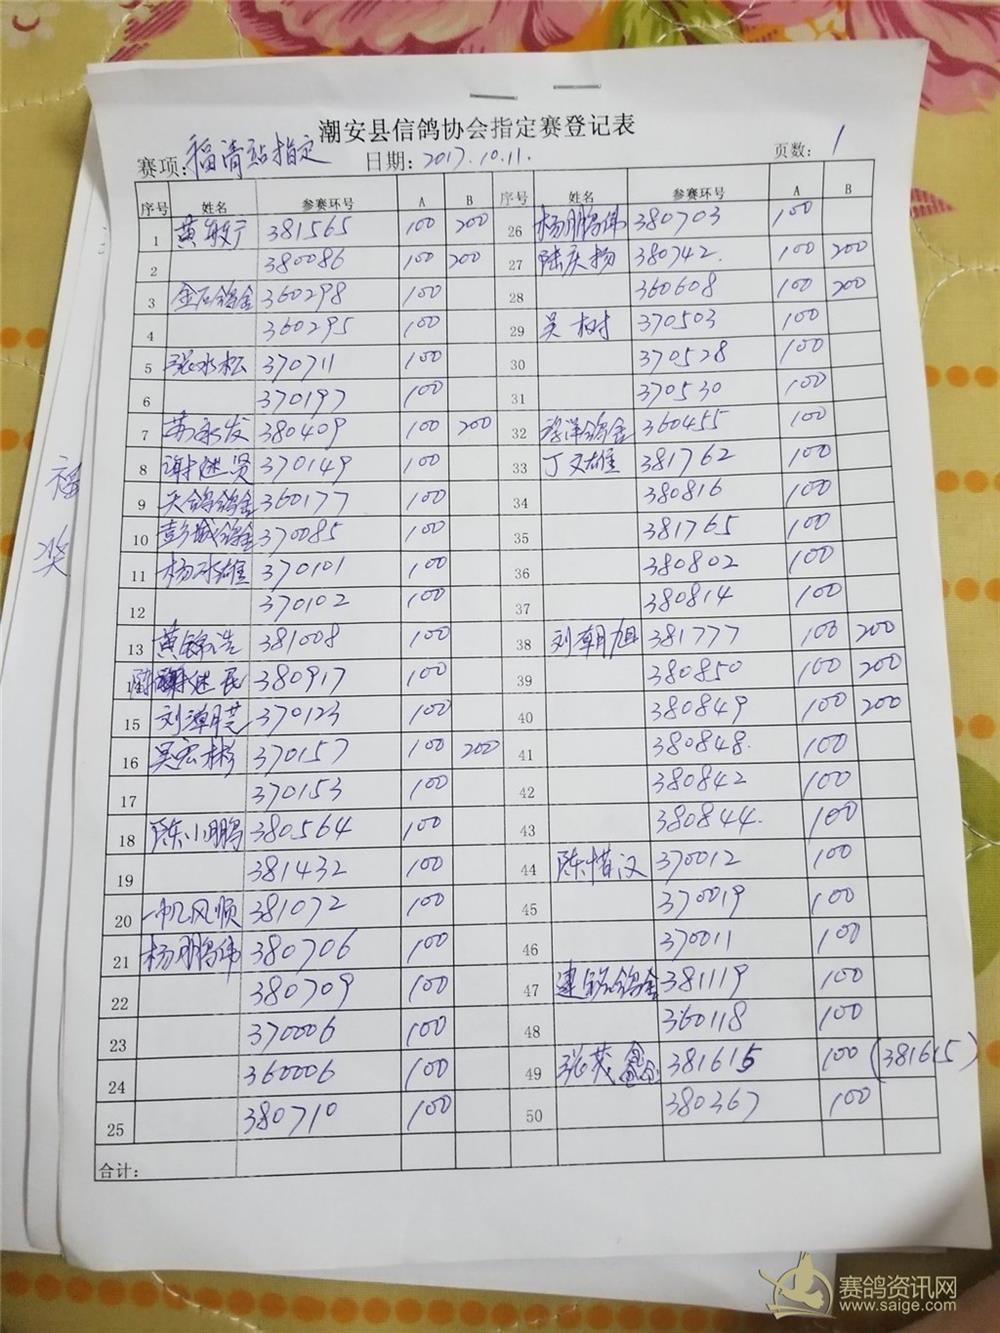 潮安县信鸽协会指定赛登记表
赛项:福清站指定 日期:2017.10.11. 页数:1
序号 姓名 参赛环号 A B 序号 姓名 参赛环号 A B
1 黄敏宁 381565 100 200 26 杨鹏伟 380703 100
2 380086 100 200 27 陆庆扬 380742. 100 200
3 金石鸽舍 360298 100 28 360608 100 200
4 360295 100 29 吴树 370503 100
5 张水松 370711 100 30 370528 100
6 370197 100 31 370530 100
7 苏永发 380409 100 200 32 海洋鸽舍 360455 100
8 谢继贤 370149 100 33 丁文雄 381762 100
9 天鸽鸽舍 360177 100 34 380816 100
10 彭城鸽舍 370085 100 35 381765 100
11 杨冰雄 370101 100 36 380802 100
12 370102 100 37 380814 100
13 黄锦浩 381008 100 38 刘朝旭 381777 100 200
14 谢继民 380917 100 39 380850 100 200
15 刘潮芝 370123 100 40 380849 100 200
16 吴宏彬 370157 100 200 41 380848. 100
17 370153 100 42 380842 100
18 陈小鹏 380564 100 43 380844. 100
19 381432 100 44 陈惜汉 370012 100
20 一帆风顺 381072 100 45 370019 100
21 杨鹏伟 380706 100 46 370011 100
22 380709 100 47 建铭鸽舍 381119 100
23 370006 100 48 360118 100
24 360006 100 49 张茂鑫 381615 100 (381615)
25 380710 100 50 380367 100
合计:
福
奖
赛鸽资讯网
www.saige.com